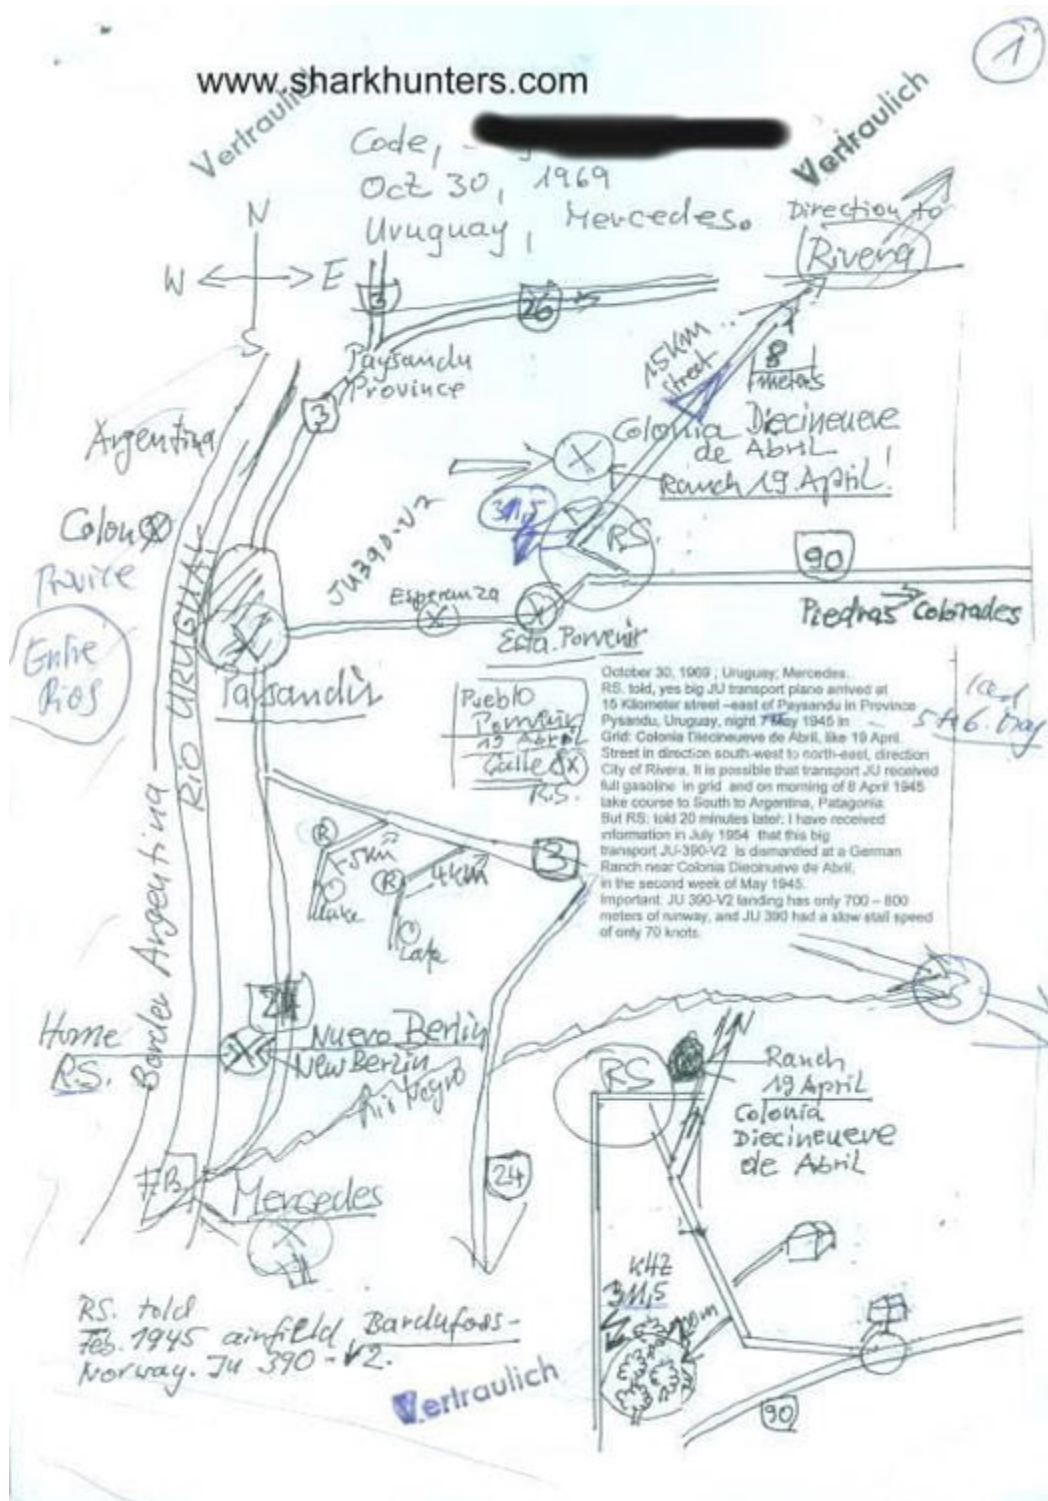 1
www.sharkhunters.com
Vertraulich
Vertraulich
Code,
Oct 30, 1969
Uruguay, Mercedes.
Direction to
Rivera
N
W E
S
3
26
Paysandu
Province
3
15KM
street
8
meters
Argentina
Colonia Diecineueve
de Abril
Ranch 19 April!
Colon
Province
Entre
Rios
RIO URUGUAY
JU390-V2
311,5
RS.
90
Esperanza
Esta. Porvenir
Piedras Colorades
Paysandu
Pueblo
Porvenir
19 Abril
Calle
R.S.
October 30, 1969 ; Uruguay; Mercedes.
RS. told, yes big JU transport plane arrived at
15 Kilometer street –east of Paysandu in Province
Pysandu, Uruguay, night May 1945 in
Grid: Colonia Diecineueve de Abril, like 19 April.
Street in direction south-west to north-east, direction
City of Rivera. It is possible that transport JU received
full gasoline in grid and on morning of 8 April 1945
take course to South to Argentina, Patagonia.
But RS: told 20 minutes later: I have received
information in July 1954 that this big
transport JU-390-V2 is dismantled at a German
Ranch near Colonia Diecinueve de Abril,
in the second week of May 1945.
Important. JU 390-V2 landing has only 700 – 800
meters of runway, and JU 390 had a slow stall speed
of only 70 knots.
Border Argentina
R
Lake
R
4KM
3
24
Home
R.S.
Nuevo Berlin
New Berlin
Rio Negro
F.B.
Mercedes
24
RS
N
Ranch
19 April
Colonia
Diecineueve
de Abril
KHZ
311,5
90
RS. told
Feb. 1945 airfield Bardufoss-
Norway. Ju 390-V2.
Vertraulich